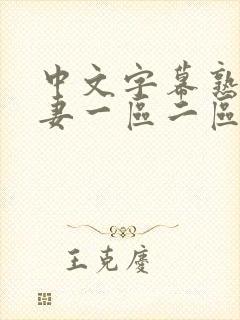 中文字幕熟
妻一區二區
王克慶